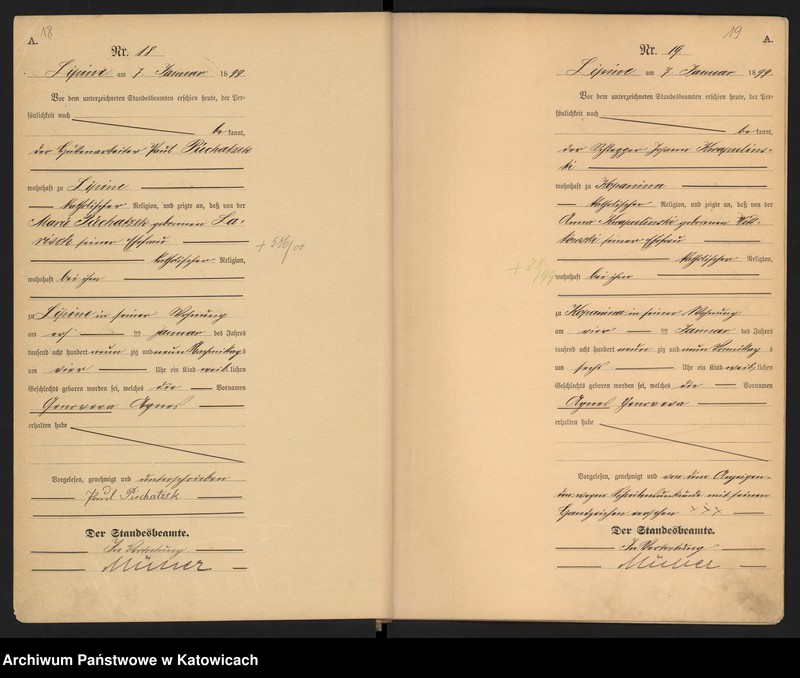 18
A.
Nr. 18
Lipine am 7 Januar 1899.
Vor dem unterzeichneten Standesbeamten erschien heute, der Per-
sönlichkeit nach
be kannt,
der Hüttenarbeiter Paul Piechatzek
wohnhaft zu Lipine
katholischer Religion, und zeigte an, daß von der
Marie Piechatzek geborenen La-
risch seiner Ehefrau
katholischer Religion,
wohnhaft bei ihm
zu Lipine in seiner Wohnung
am ersten Januar des Jahres
tausend acht hundert neun zig und neun Nachmittags
um vier Uhr ein Kind weiblichen
Geschlechts geboren worden sei, welches die Vornamen
Genoveva Agnes
erhalten habe
Vorgelesen, genehmigt und unterschrieben
Paul Piechatzek
Der Standesbeamte.
In Vertretung
Müller
19
A.
Nr. 19
Lipine am 7 Januar 1899.
Vor dem unterzeichneten Standesbeamten erschien heute, der Per-
sönlichkeit nach
be kannt,
der Schlepper Johann Kwapulins-
ki
wohnhaft zu Kopanina
katholischer Religion, und zeigte an, daß von der
Anna Kwapulinski geborenen
seiner Ehefrau
katholischer Religion,
wohnhaft bei ihm
zu Kopanina in seiner Wohnung
am vier ten Januar des Jahres
tausend acht hundert neun zig und neun Vormittags
um sechs Uhr ein Kind weiblichen
Geschlechts geboren worden sei, welches die Vornamen
Agnes Genoveva
erhalten habe
Vorgelesen, genehmigt und von dem Anzeigen-
den wegen Schreibensunkunde mit seinem
Handzeichen versehen + + +
Der Standesbeamte.
In Vertretung
Müller
Archiwum Państwowe w Katowicach